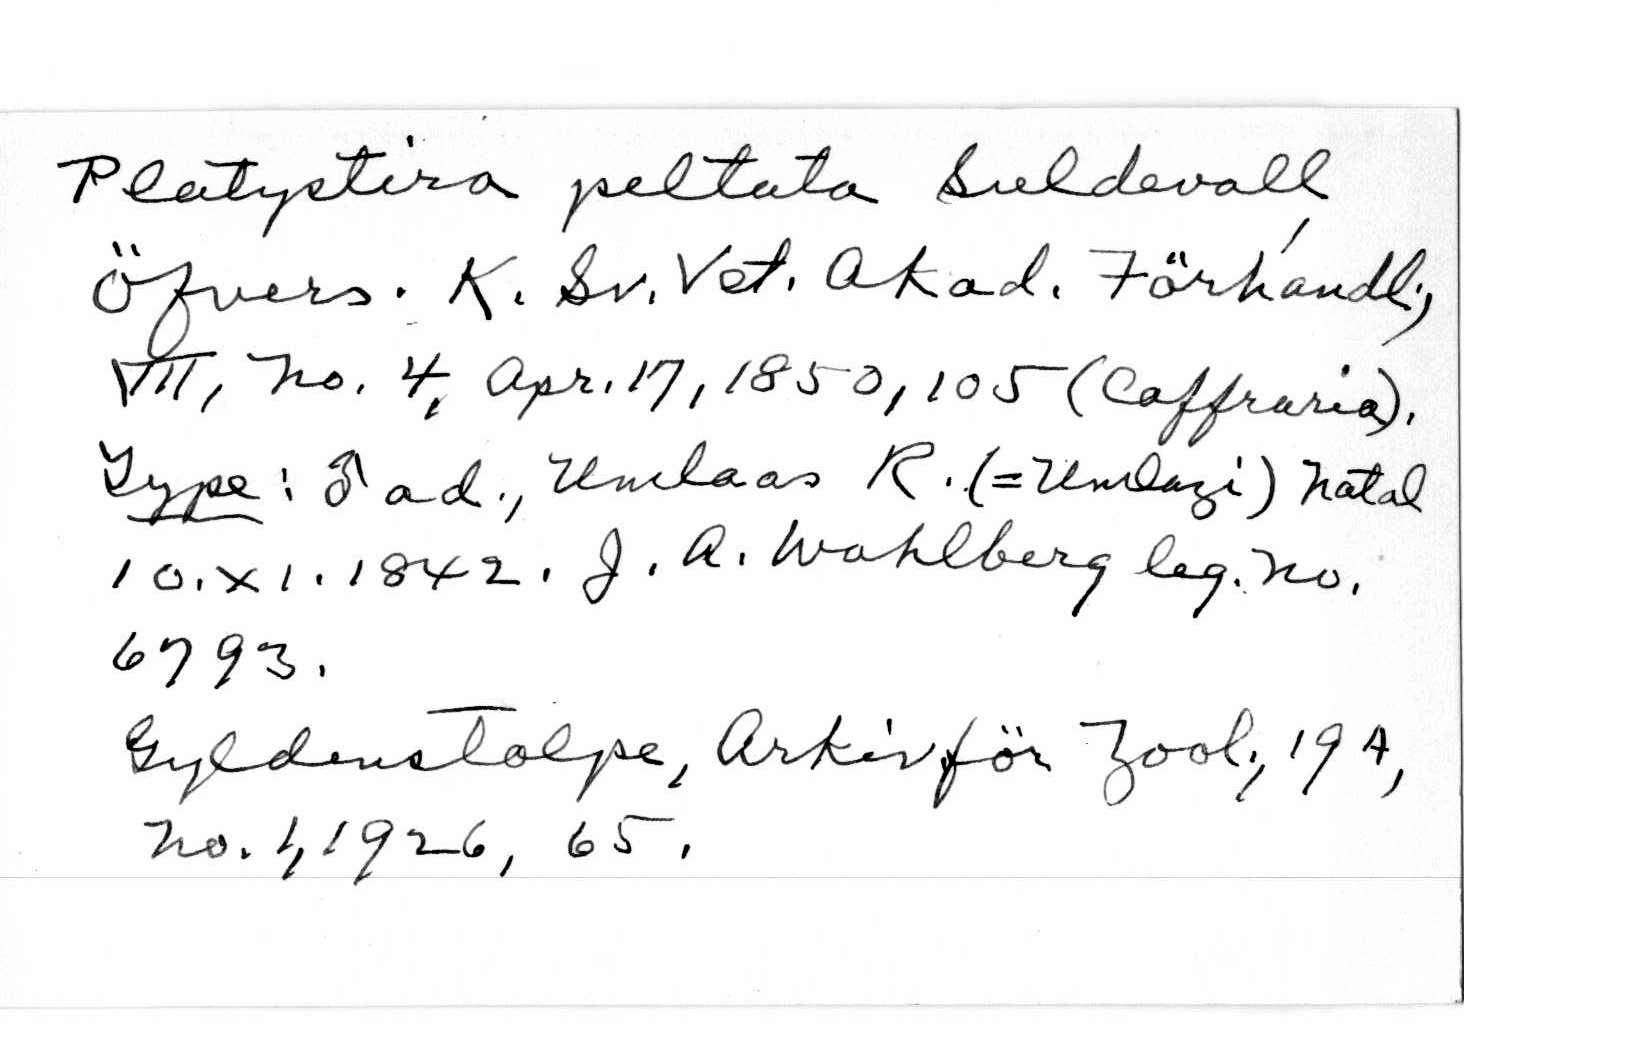 Platystira peltata Suldevall,
Öfvers. K. Sv. Vet. Akad. Förhandl.,
VII, no. 4, Apr. 17, 1850, 105 (Caffraria).
Type: ♂ ad., Umlaas R. (=Umlazi) Natal
10.XI.1842. J. A. Wahlberg leg. no.
6793.
Gyldenstolpe, Arkiv för Zool., 19A,
no. 1, 1926, 65.